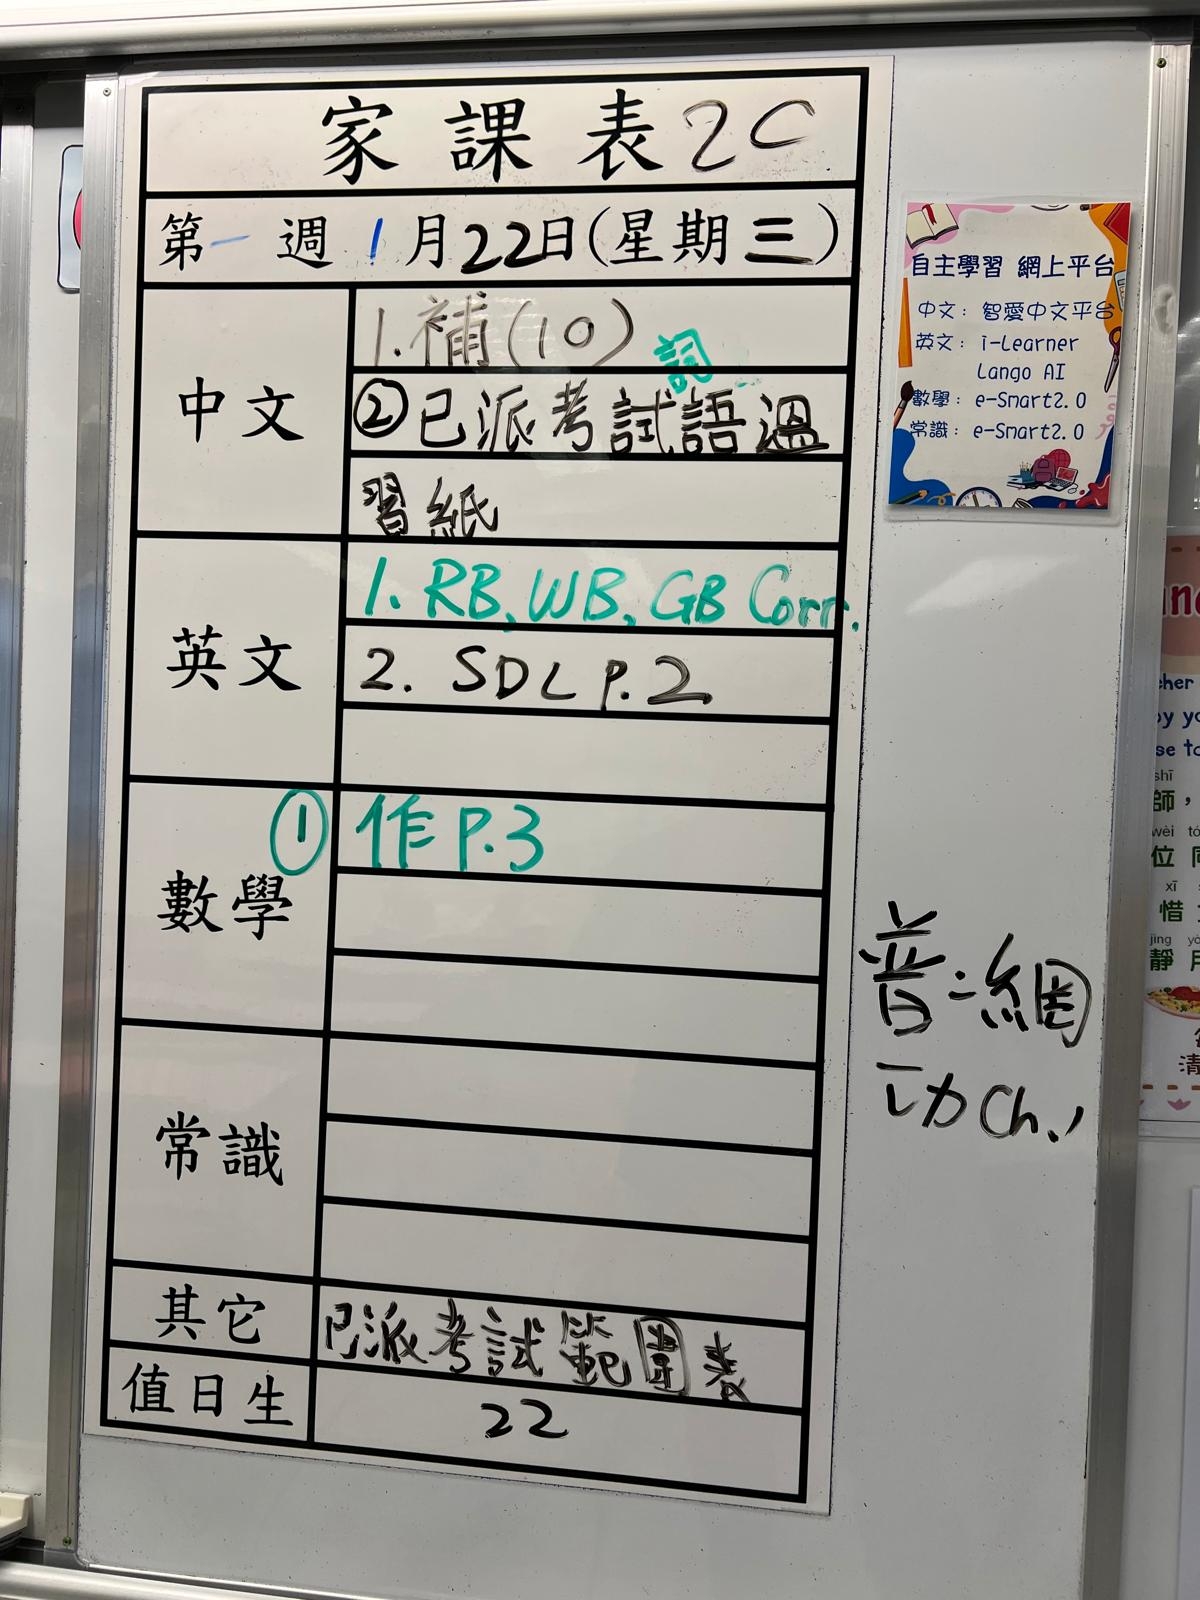 家課表 2C
第一週 1月22日(星期三)
中文
1. 補(10)
詞
② 已派考試語溫
習紙
英文
1. RB, WB, GB Corr.
2. SDL P.2
數學
① 作 P.3
常識
其它
已派考試範圍表
值日生
22
自主學習 網上平台
中文: 智愛中文平台
英文: i-Learner
Lango AI
數學: e-Smart2.0
常識: e-Smart2.0
普:網
功Ch.1
cher
by yo
se to
shī
師,
wèi tó
位
xī
惜
jìng
靜
清